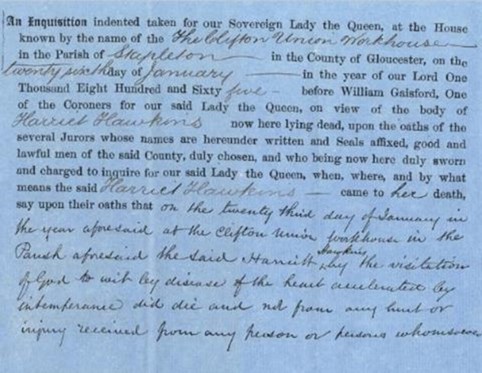 An Inquisition indented taken for our Sovereign Lady the Queen, at the House
known by the name of the The Clifton Union Workhouse
in the Parish of Stapleton in the County of Gloucester, on the
twenty sixth day of January in the year of our Lord One
Thousand Eight Hundred and Sixty five before William Gaisford, One
of the Coroners for our said Lady the Queen, on view of the body of
Harriet Hawkins now here lying dead, upon the oaths of the
several Jurors whose names are hereunder written and Seals affixed, good and
lawful men of the said County, duly chosen, and who being now here duly sworn
and charged to inquire for our said Lady the Queen, when, where, and by what
means the said Harriet Hawkins came to her death,
say upon their oaths that on the twenty third day of January in
the year aforesaid at the Clifton Union Workhouse in the
Parish aforesaid the said Harriett Hawkins by the visitation
of God to wit by disease of the heart accelerated by
intemperance did die and not from any hurt or
injury received from any person or persons whomsoever